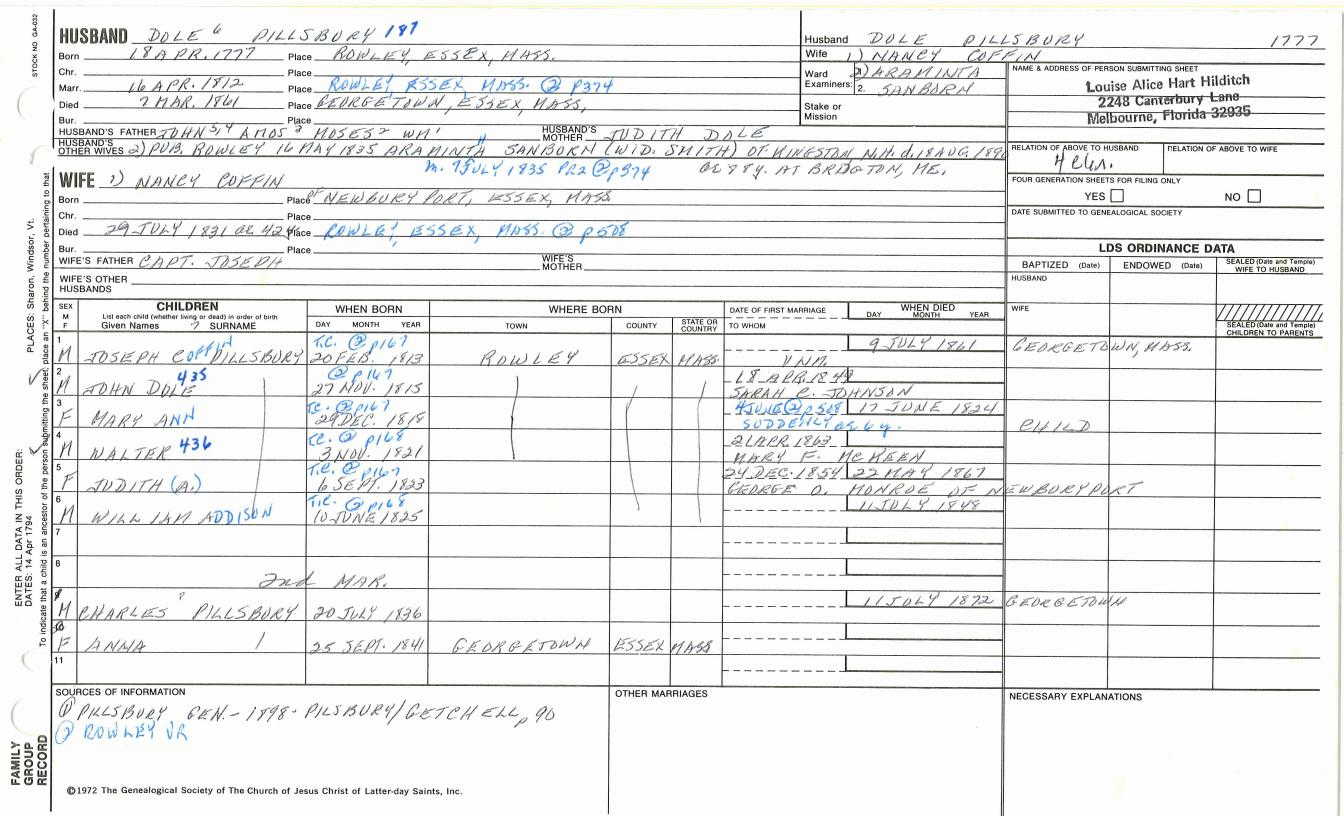 STOCK NO. GA-032
HUSBAND DOLE 6 PILLSBURY 187
Born 18 APR. 1777 Place ROWLEY, ESSEX, MASS.
Chr. Place
Marr. 16 APR. 1812 Place ROWLEY, ESSEX, MASS. ② p374
Died 7 MAR. 1861 Place GEORGETOWN, ESSEX, MASS,
Bur. Place
HUSBAND'S FATHER JOHN 5,4 AMOS 3 MOSES 2 WM 1 HUSBAND'S MOTHER JUDITH DOLE
HUSBAND'S OTHER WIVES 2) PUB. ROWLEY 16 MAY 1835 ARAMINTA SANBORN (WID. SMITH) OF KINGSTON N.H. d. 18 AUG. 189
m. 7 JULY 1835 PR2 @ p374 AE 78 y. AT BRIDGTON, ME.
Husband DOLE PILLSBURY 1777
Wife 1) NANCY COFFIN
Ward 2) ARAMINTA
Examiners: 2. SANBORN
Stake or Mission
NAME & ADDRESS OF PERSON SUBMITTING SHEET
Louise Alice Hart Hilditch
2248 Canterbury Lane
Melbourne, Florida 32935
RELATION OF ABOVE TO HUSBAND RELATION OF ABOVE TO WIFE
FOUR GENERATION SHEETS FOR FILING ONLY
YES NO
DATE SUBMITTED TO GENEALOGICAL SOCIETY
WIFE 1) NANCY COFFIN
Born Place of NEWBURY PORT, ESSEX, MASS
Chr. Place
Died 29 JULY 1831 AE 42 y Place ROWLEY, ESSEX, MASS. ② p508
Bur. Place
WIFE'S FATHER CAPT. JOSEPH WIFE'S MOTHER
WIFE'S OTHER HUSBANDS
LDS ORDINANCE DATA
BAPTIZED (Date) ENDOWED (Date) SEALED (Date and Temple) WIFE TO HUSBAND
HUSBAND
WIFE
SEALED (Date and Temple) CHILDREN TO PARENTS
SEX M F CHILDREN List each child (whether living or dead) in order of birth Given Names 7 SURNAME WHEN BORN DAY MONTH YEAR WHERE BORN TOWN COUNTY STATE OR COUNTRY DATE OF FIRST MARRIAGE TO WHOM WHEN DIED DAY MONTH YEAR
1 T.C. ② p167 9 JULY 1861 GEORGETOWN, MASS.
M JOSEPH COFFIN PILLSBURY 20 FEB. 1813 ROWLEY ESSEX MASS UNM.
2 435 ② p167 18 APR. 1849
M JOHN DOLE 27 NOV. 1815 SARAH C. JOHNSON
3 T.C. ② p167 4 JUNE ② p508 17 JUNE 1824
F MARY ANN 29 DEC. 1818 SUDDENLY ae 6 y. CHILD
4 T.C. ② p168 21 APR. 1863
M WALTER 436 3 NOV. 1821 MARY F. McKEEN
5 T.C. ② p167 24 DEC. 1854 22 MAY 1867
F JUDITH (A.) 6 SEPT. 1823 GEORGE O. MONROE OF NEWBURYPORT
6 T.C. ② p168 11 JULY 1848
M WILLIAM ADDISON 10 JUNE 1825
7
8
2nd MAR.
9 11 JULY 1872 GEORGETOWN
M CHARLES 7 PILLSBURY 20 JULY 1836
10
F ANNA 25 SEPT. 1841 GEORGETOWN ESSEX MASS
11
SOURCES OF INFORMATION OTHER MARRIAGES NECESSARY EXPLANATIONS
① PILLSBURY GEN. - 1898 - PILSBURY/GETCHELL, p 90
② ROWLEY VR
©1972 The Genealogical Society of The Church of Jesus Christ of Latter-day Saints, Inc.
FAMILY GROUP RECORD
ENTER ALL DATA IN THIS ORDER:
DATES: 14 Apr 1794
PLACES: Sharon, Windsor, Vt.
To indicate that a child is an ancestor of the person submitting the sheet, place an "X" behind the number pertaining to that